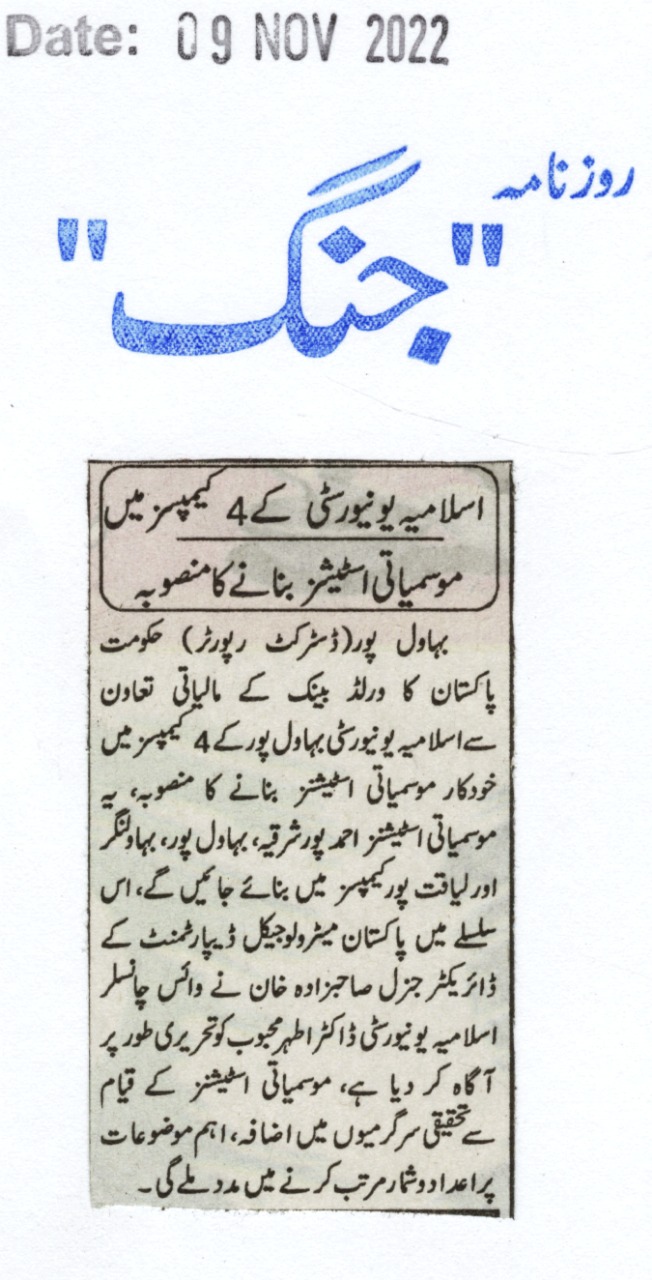 Date: 09 NOV 2022
روزنامہ
"جنگ"
اسلامیہ یونیورسٹی کے 4 کیمپسز میں
موسمیاتی اسٹیشنز بنانے کا منصوبہ
بہاول پور (ڈسٹرکٹ رپورٹر) حکومت
پاکستان کا ورلڈ بینک کے مالیاتی تعاون
سے اسلامیہ یونیورسٹی بہاول پور کے 4 کیمپسز میں
خودکار موسمیاتی اسٹیشنز بنانے کا منصوبہ، یہ
موسمیاتی اسٹیشنز احمد پور شرقیہ، بہاول پور، بہاولنگر
اور لیاقت پور کیمپسز میں بنائے جائیں گے، اس
سلسلے میں پاکستان میٹرولوجیکل ڈیپارٹمنٹ کے
ڈائریکٹر جنرل صاحبزادہ خان نے وائس چانسلر
اسلامیہ یونیورسٹی ڈاکٹر اطہر محبوب کو تحریری طور پر
آگاہ کر دیا ہے، موسمیاتی اسٹیشنز کے قیام
سے تحقیقی سرگرمیوں میں اضافہ، اہم موضوعات
پر اعداد و شمار مرتب کرنے میں مدد ملے گی۔